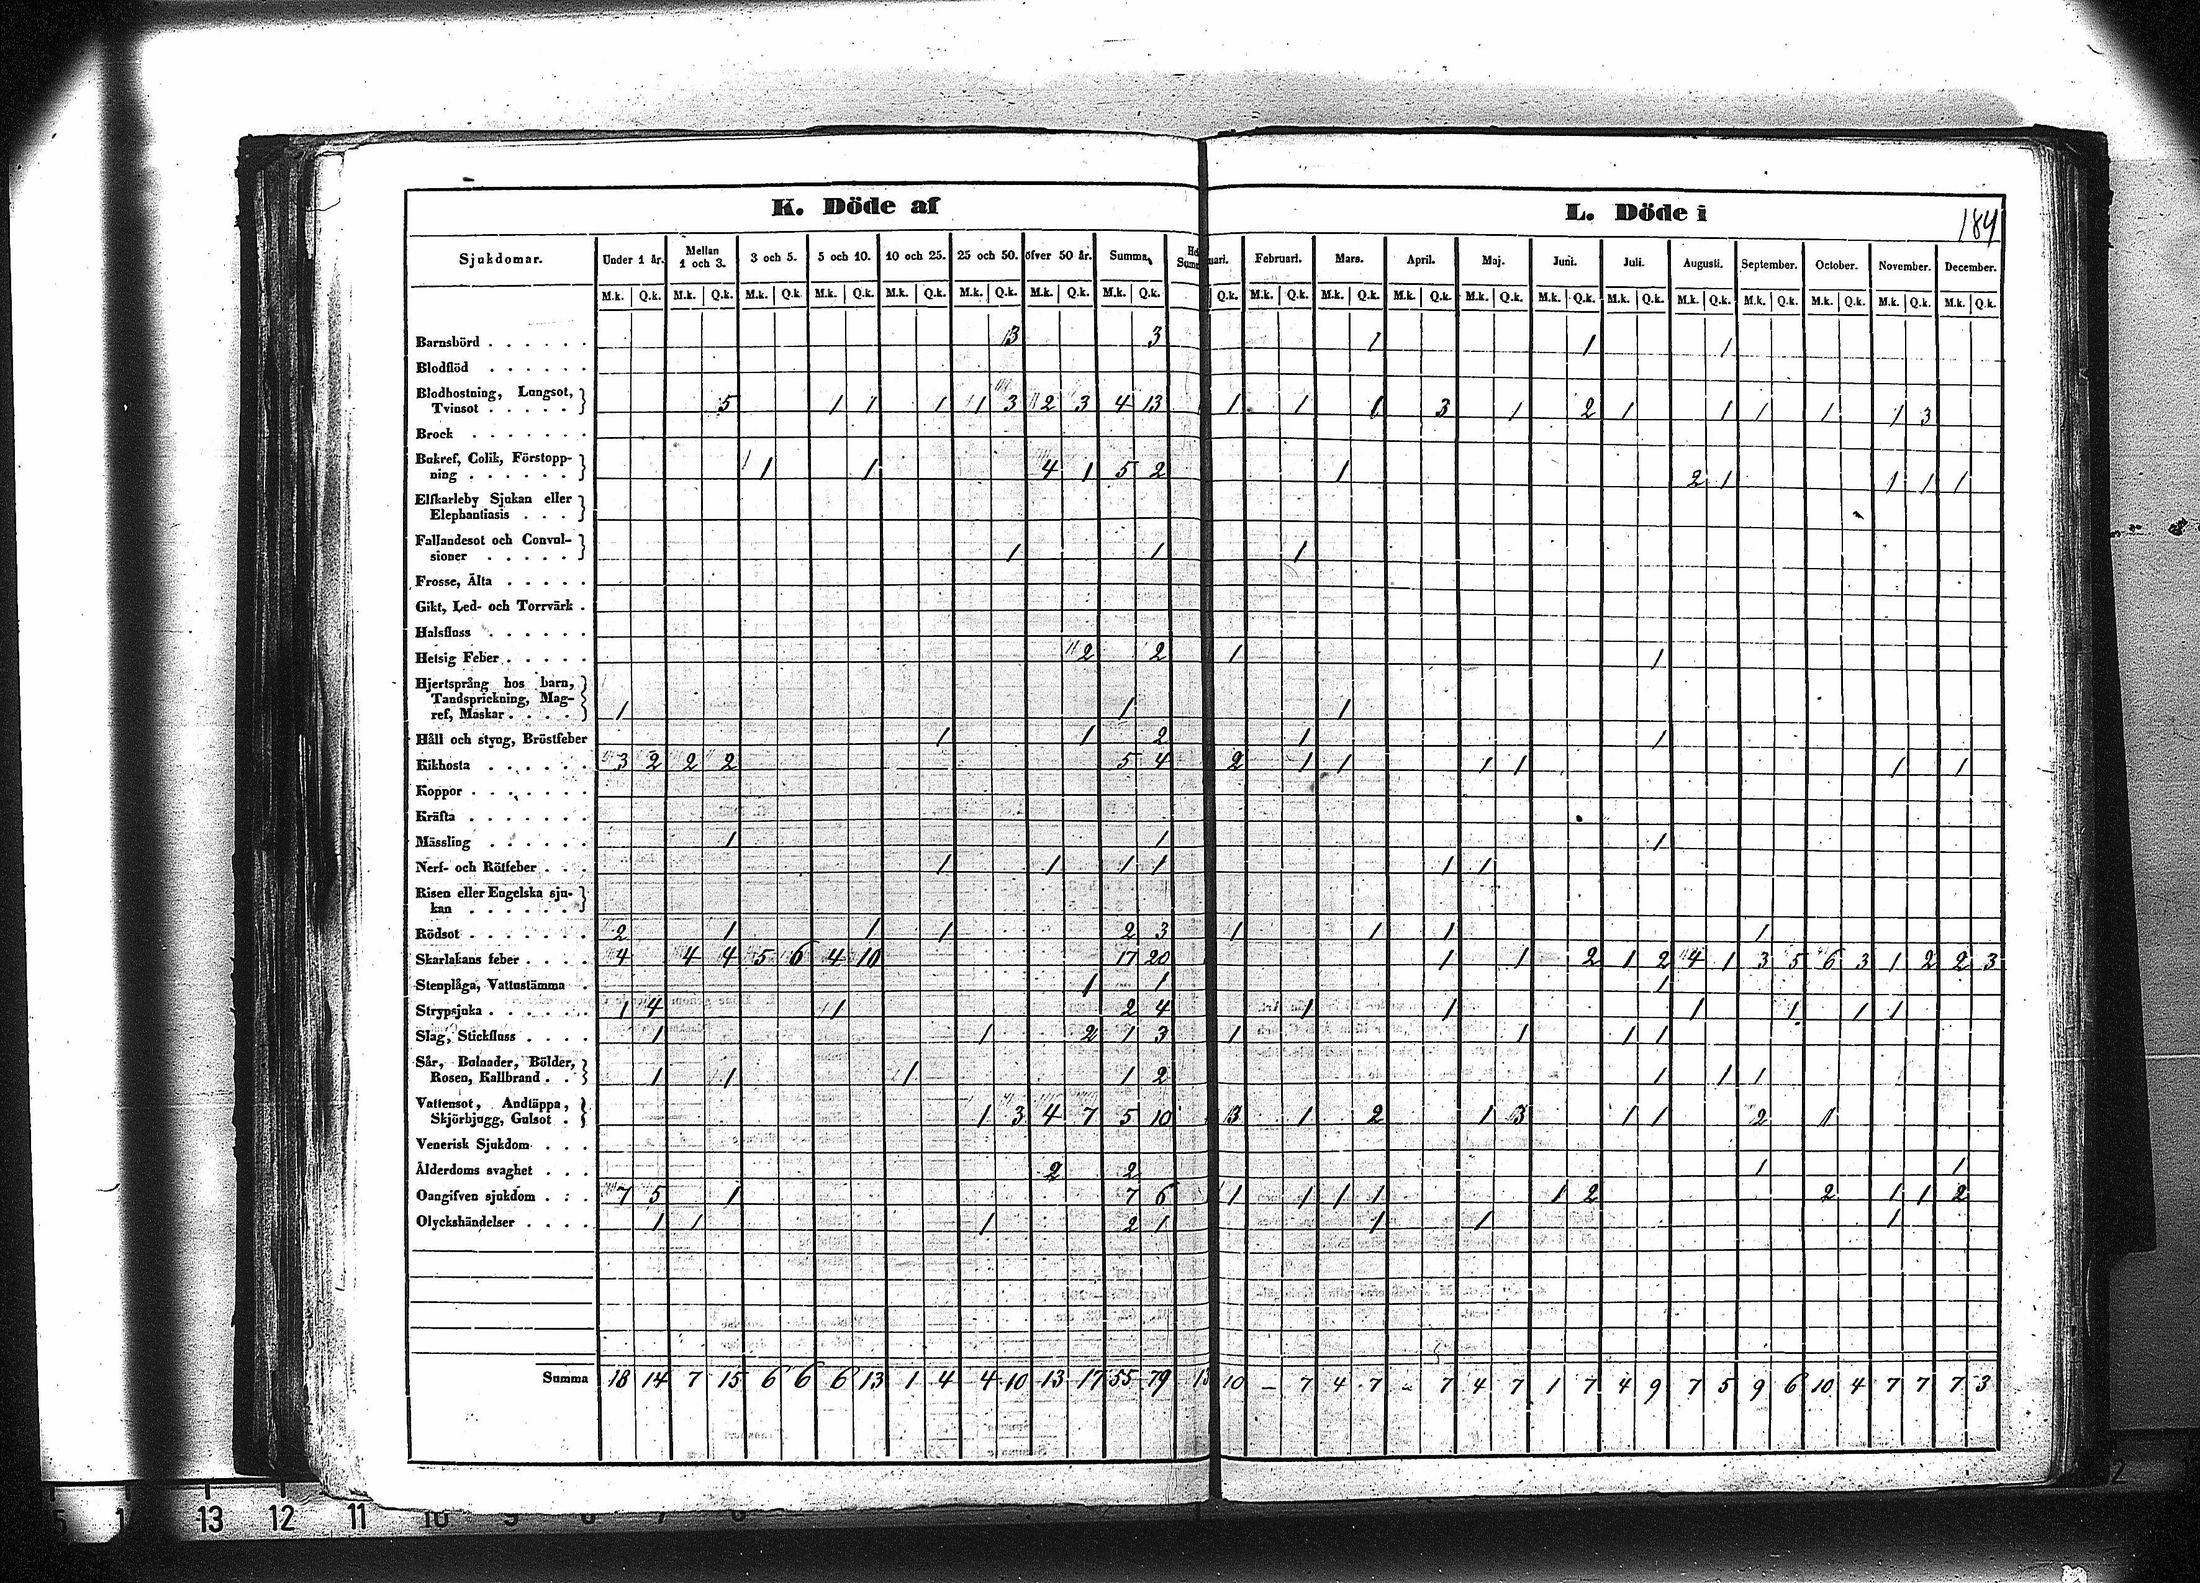 K. Döde af
L. Döde i
184
Sjukdomar. Under 1 år. Mellan 1 och 3. 3 och 5. 5 och 10. 10 och 25. 25 och 50. öfver 50 år. Summa. Februari. Mars. April. Maj. Juni. Juli. Augusti. September. October. November. December.
M.k. Q.k. M.k. Q.k. M.k. Q.k. M.k. Q.k. M.k. Q.k. M.k. Q.k. M.k. Q.k. M.k. Q.k. Q.k. M.k. Q.k. M.k. Q.k. M.k. Q.k. M.k. Q.k. M.k. Q.k. M.k. Q.k. M.k. Q.k. M.k. Q.k. M.k. Q.k. M.k. Q.k. M.k. Q.k.
Barnsbörd 3 3 1 1 1
Blodflöd
Blodhostning, Lungsot,
Tvinsot 5 1 1 1 1 3 2 3 4 13 1 1 1 3 1 2 1 1 1 1 1 3
Brock
Bukref, Colik, Förstopp-
ning 1 1 4 1 5 2 1 2 1 1 1 1
Elfkarleby Sjukan eller
Elephantiasis
Fallandesot och Convul-
sioner 1 1 1
Frosse, Älta
Gikt, Led- och Torrvärk
Halsfluss
Hetsig Feber 2 2 1 1
Hjertsprång hos barn,
Tandsprickning, Mag-
ref, Maskar 1 1 1
Håll och styng, Bröstfeber 1 1 2 1 1
Kikhosta 3 2 2 2 5 4 2 1 1 1 1 1 1
Koppor
Kräfta
Mässling 1 1 1
Nerf- och Rötfeber 1 1 1 1 1 1
Risen eller Engelska sju-
kan
Rödsot 2 1 1 1 2 3 1 1 1 1
Skarlakans feber 4 4 4 5 6 4 10 17 20 1 1 2 1 2 4 1 3 5 6 3 1 2 2 3
Stenplåga, Vattustämma 1 1 1
Strypsjuka 1 4 1 2 4 1 1 1 1 1 1
Slag, Stickfluss 1 1 2 1 3 1 1 1 1
Sår, Bulnader, Bölder,
Rosen, Kallbrand 1 1 1 1 2 1 1 1
Vattensot, Andtäppa,
Skjörbjugg, Gulsot 1 3 4 7 5 10 3 1 2 1 3 1 1 2 1
Venerisk Sjukdom
Ålderdoms svaghet 2 2 1 1
Oangifven sjukdom 7 5 1 7 6 1 1 1 1 1 2 2 1 1 2
Olyckshändelser 1 1 1 2 1 1 1 1
Summa 18 14 7 15 6 6 6 13 1 4 4 10 13 17 55 79 10 – 7 4 7 – 7 4 7 1 7 4 9 7 5 9 6 10 4 7 7 7 3
13 12 11 10 9 8 7 6